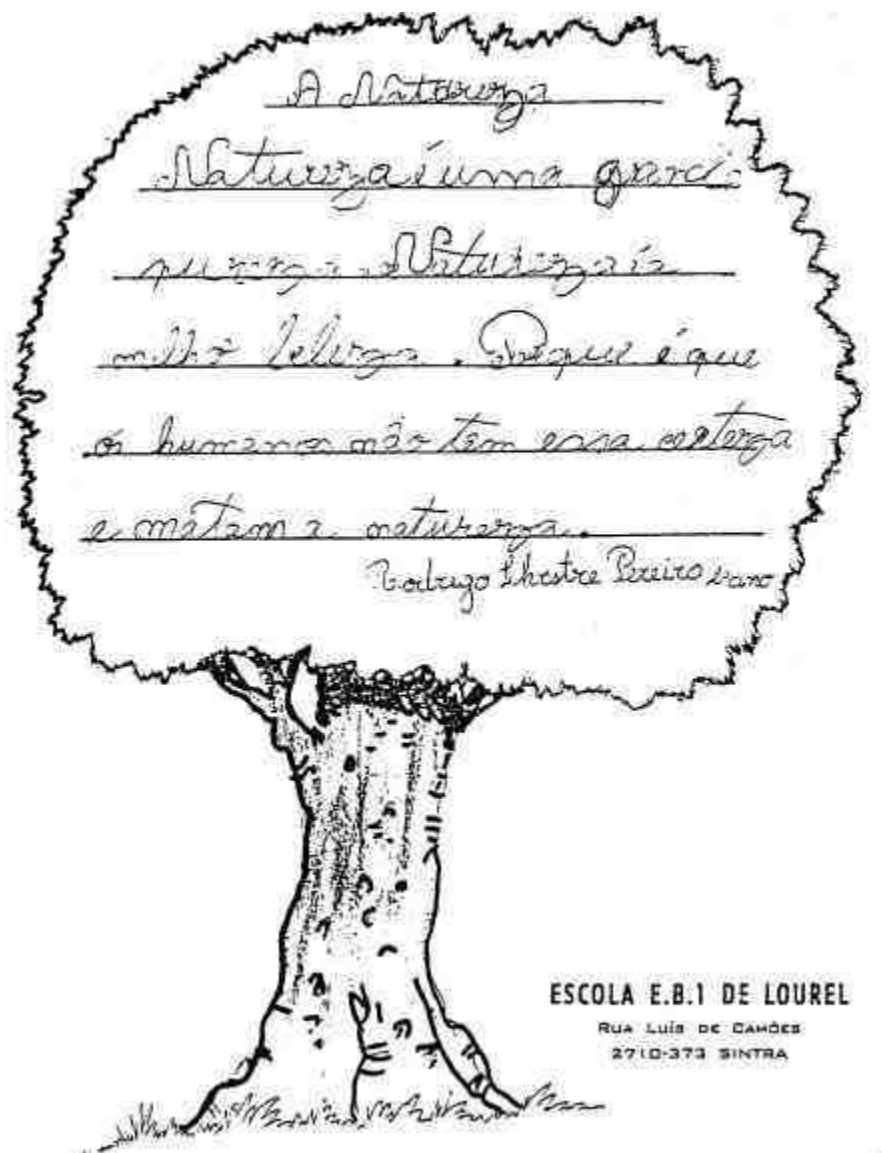 A Natureza
Natureza é uma
pureza. Natureza
beleza. Porque é que
os humanos não tem essa certeza
e matam a natureza.
Rodrigo Pereira ano
ESCOLA E.B.1 DE LOUREL
RUA LUÍS DE CAMÕES
2710-373 SINTRA